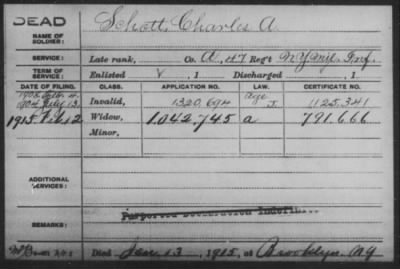 DEAD
NAME OF SOLDIER: Schott, Charles A
SERVICE: Late rank, Co. A, 47 Reg't N Y Mil. Inf.
TERM OF SERVICE: Enlisted , 1 Discharged , 1
DATE OF FILING. CLASS. APPLICATION NO. LAW. CERTIFICATE NO.
1904 July 13 Invalid, 1320,694 age 1125,341
1915 Feb 12 Widow, 1,042,745 a 791,666
Minor,
ADDITIONAL SERVICES:
REMARKS:
Died Jan 13, 1915, at Brooklyn NY